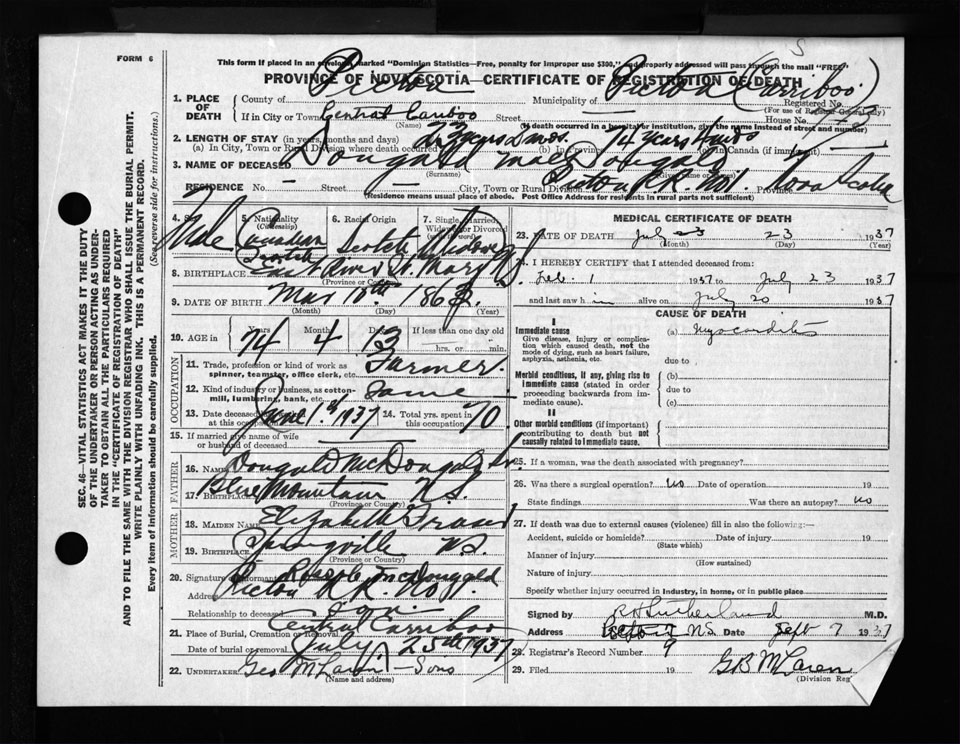 S
FORM 6
This form if placed in an envelope marked "Dominion Statistics—Free, penalty for improper use $300," and properly addressed will pass through the mail "FREE"
PROVINCE OF NOVA SCOTIA—CERTIFICATE OF REGISTRATION OF DEATH
1. PLACE OF DEATH County of Pictou Municipality of Pictou (Carriboo) Registered No.
(For use of Registrar General only)
If in City or Town Central Cariboo Street House No.
(Name) (If death occurred in a hospital or institution, give the name instead of street and number)
2. LENGTH OF STAY (in years, months and days)
(a) In City, Town or Rural Division where death occurred (b) In Province 74 years (c) In Canada (if immigrant)
3. NAME OF DECEASED Dougald MacDougald
(Surname) (Given name or names)
RESIDENCE No. — Street — City, Town or Rural Division Pictou R.R. No 1. Province Nova Scotia
(Residence means usual place of abode. Post Office Address for residents in rural parts not sufficient)
4. Sex Male
5. Nationality (Citizenship) Canadian
6. Racial Origin Scotch
7. Single, Married, Widowed or Divorced (write the word) Widower
8. BIRTHPLACE East River St. Mary N.S.
(Province or Country)
9. DATE OF BIRTH Mar 10th 1863.
(Month) (Day) (Year)
10. AGE in Years 74 Months 4 Days 13 If less than one day old
hrs. or min.
OCCUPATION
11. Trade, profession or kind of work as spinner, teamster, office clerk, etc. Farmer.
12. Kind of industry or business, as cotton-mill, lumbering, bank, etc. Same
13. Date deceased last worked at this occupation June 1st 1937 14. Total yrs. spent in this occupation 70
15. If married give name of wife or husband of deceased
FATHER
16. NAME Dougald McDougald Sr.
17. BIRTHPLACE Blue Mountain N.S.
(Province or Country)
MOTHER
18. MAIDEN NAME Elizabeth Fraser
19. BIRTHPLACE Springville N.S.
(Province or Country)
20. Signature of informant McDougald
Address Pictou R.R. No 1.
Relationship to deceased Son.
21. Place of Burial, Cremation or Removal Central Carriboo
Date of burial or removal July 25th 1937
22. UNDERTAKER Geo McLaren — Sons
(Name and address)
MEDICAL CERTIFICATE OF DEATH
23. DATE OF DEATH July 23 23 1937
(Month) (Day) (Year)
24. I HEREBY CERTIFY that I attended deceased from:
Feb. 1 1937 to July 23 1937
and last saw him alive on July 20 1937
CAUSE OF DEATH
I
Immediate cause (a) Myocarditis
Give disease, injury or complication which caused death, not the mode of dying, such as heart failure, asphyxia, asthenia, etc.
due to
Morbid conditions, if any, giving rise to immediate cause (stated in order proceeding backwards from immediate cause).
(b)
due to
(c)
II
Other morbid conditions (if important) contributing to death but not causally related to immediate cause.
25. If a woman, was the death associated with pregnancy?
26. Was there a surgical operation? no Date of operation 19
State findings Was there an autopsy? no
27. If death was due to external causes (violence) fill in also the following:—
Accident, suicide or homicide? Date of injury 19
(State which)
Manner of injury
(How sustained)
Nature of injury
Specify whether injury occurred in industry, in home, or in public place
Signed by R H Sutherland M.D.
Address Pictou N.S. Date Sept 7 1937
28. Registrar's Record Number 9
29. Filed 19 G B McLaren
(Division Reg
SEC. 46—VITAL STATISTICS ACT MAKES IT THE DUTY OF THE UNDERTAKER OR PERSON ACTING AS UNDERTAKER TO OBTAIN ALL THE PARTICULARS REQUIRED IN THE "CERTIFICATE OF REGISTRATION OF DEATH" AND TO FILE THE SAME WITH THE DIVISION REGISTRAR WHO SHALL ISSUE THE BURIAL PERMIT.
WRITE PLAINLY WITH UNFADING INK. THIS IS A PERMANENT RECORD.
Every item of information should be carefully supplied. (See reverse side for instructions.)